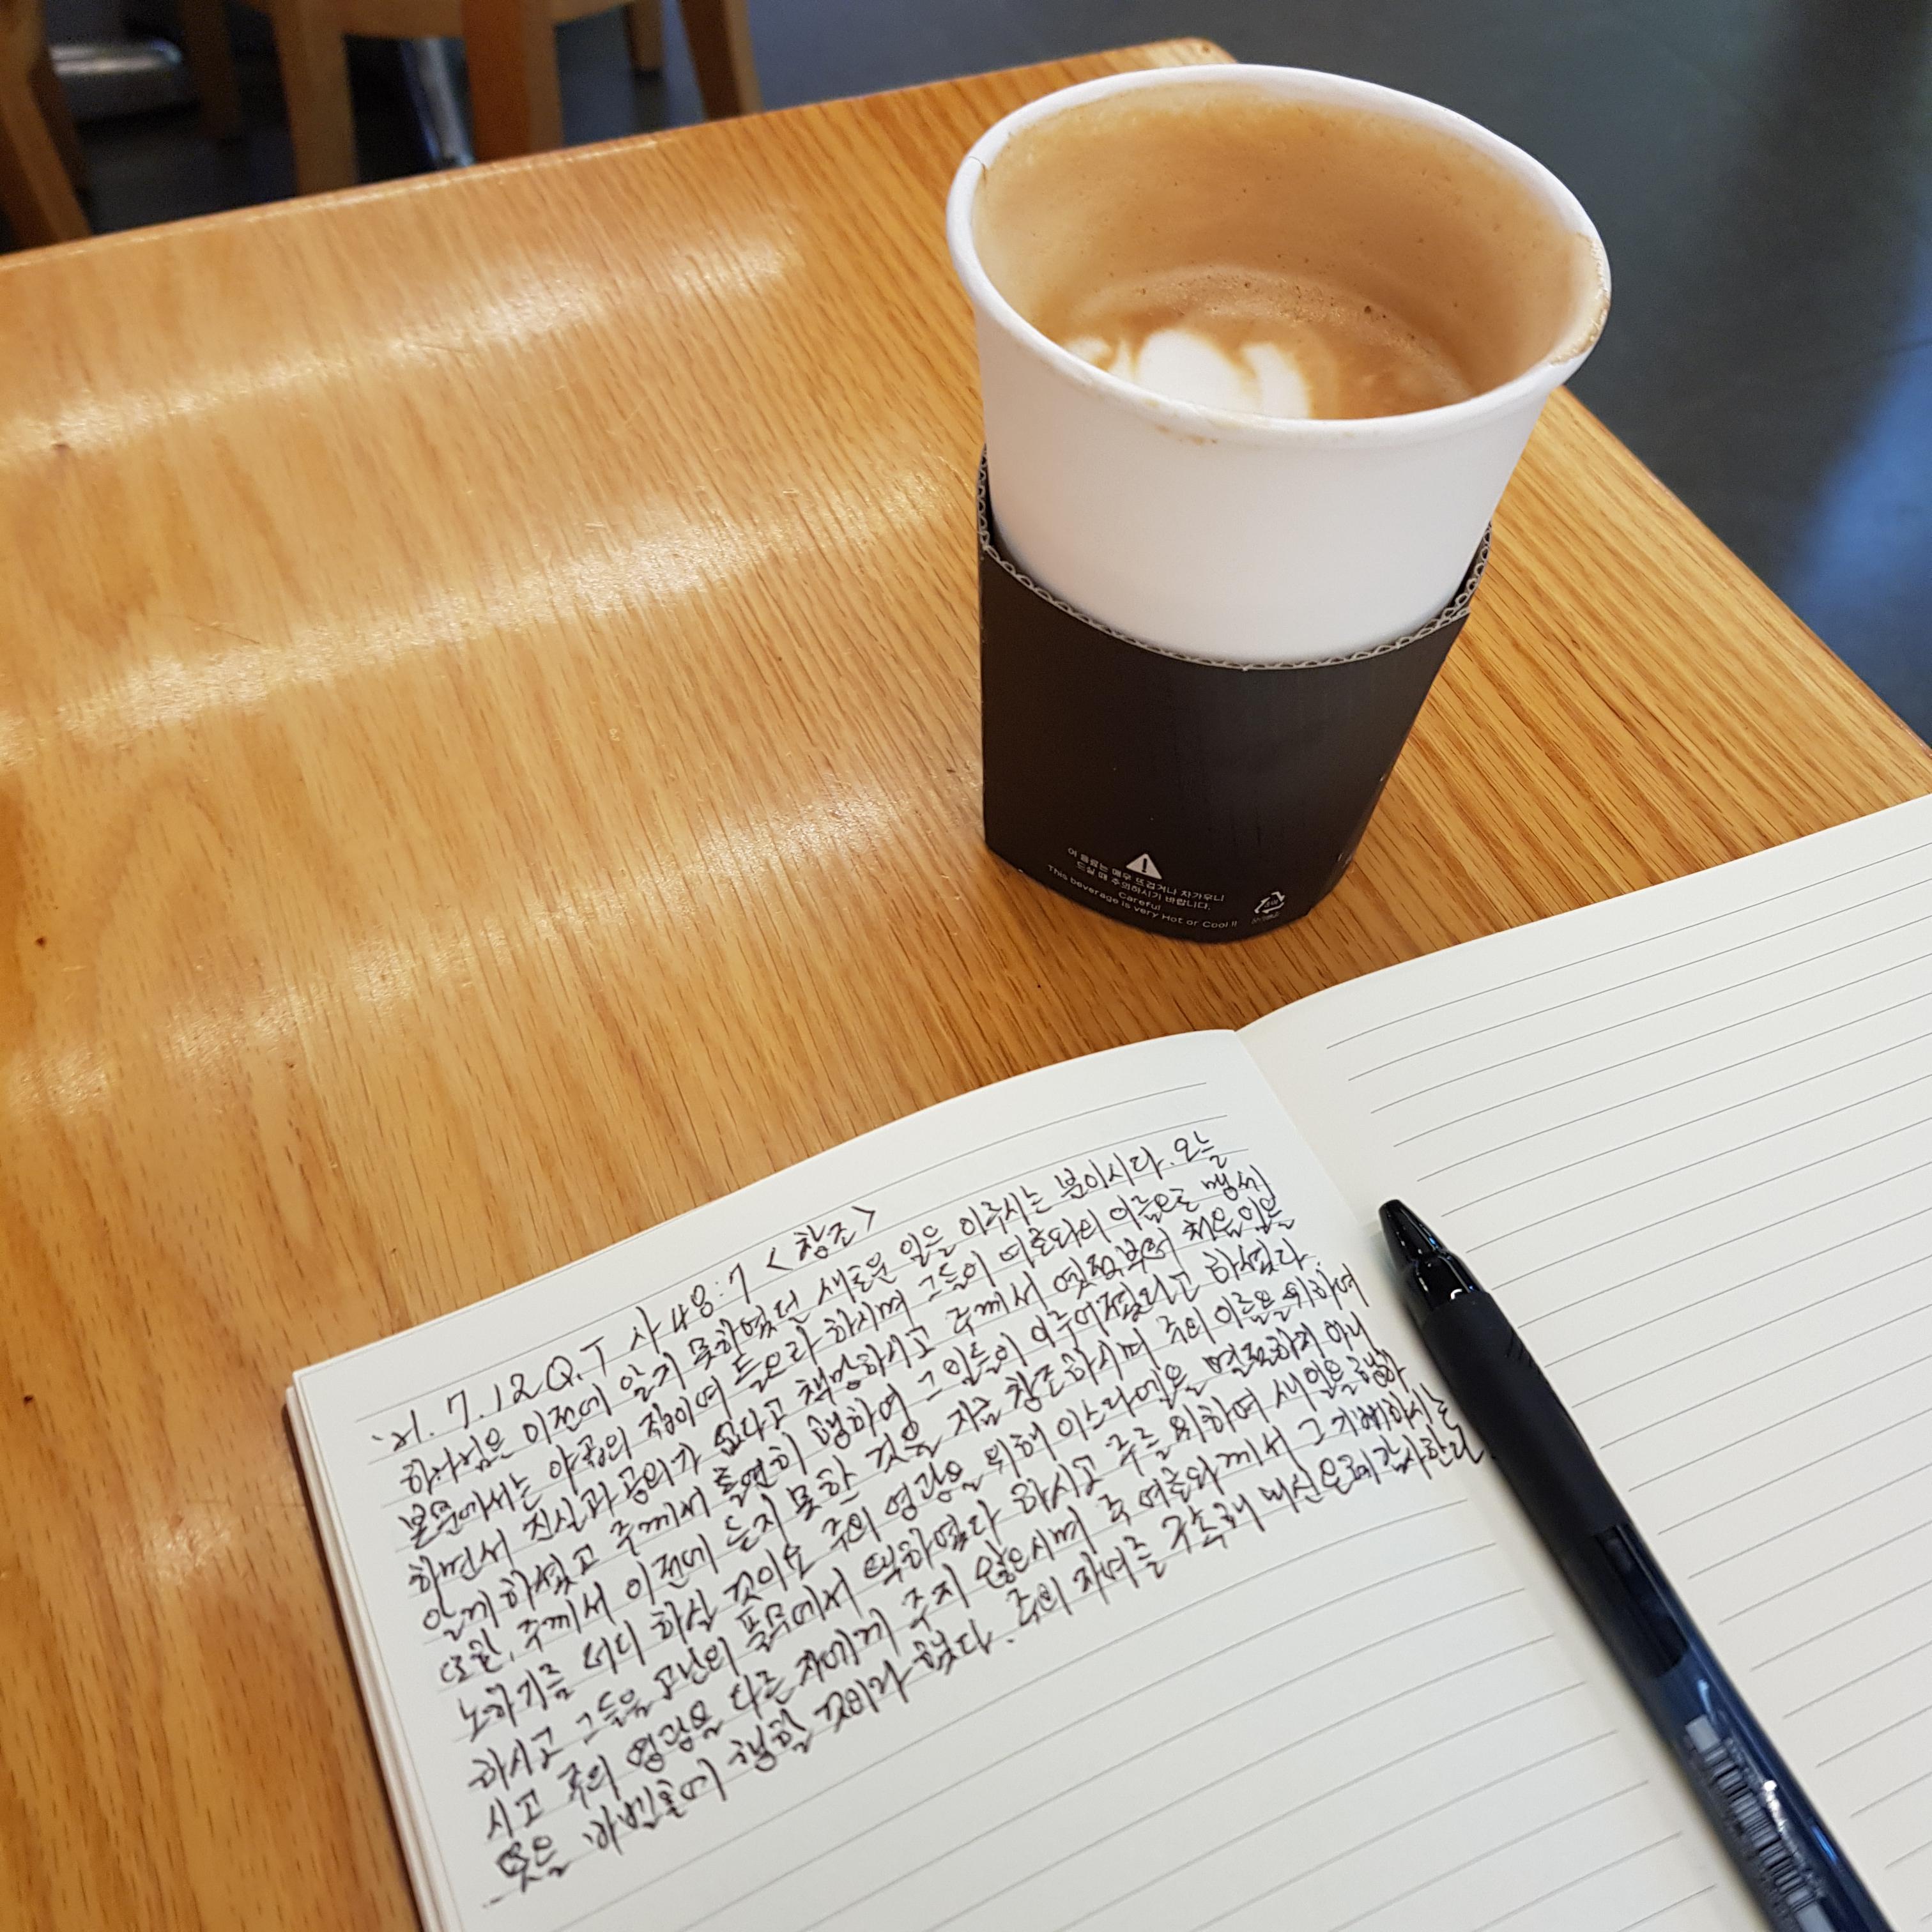 이 음료는 매우 뜨겁거나 차가우니
드실 때 주의하시기 바랍니다.
Careful
This beverage is very Hot or Cool !!
'21. 7. 12 Q.T 사 48:7 <창조>
하나님은 이전에 알지 못하였던 새로운 일을 이루시는 분이시다. 오늘
본문에서는 야곱의 집이여 들으라 하시며 그들이 여호와의 이름으로 맹세
하면서 진실과 공의가 없다고 책망하시고 주께서 옛적부터 처음 일을
알게 하셨고 주께서 홀연히 행하여 그 일들이 이루어졌다고 하셨다.
또한, 주께서 이전에 듣지 못한 것을 지금 창조하시며 주의 이름을 위하여
노하기를 더디 하실 것이요 주의 영광을 위해 이스라엘을 멸절하지 아니
하시고 그들을 고난의 풀무에서 택하였다 하시고 주를 위하여 새 일을 행하
시고 주의 영광을 다른 자에게 주지 않으시며 즉 여호와께서 그 기뻐하시는
뜻을 바벨론에 행할 것이라 했다. 주의 자녀를 구속해 내심으로 감사한다.